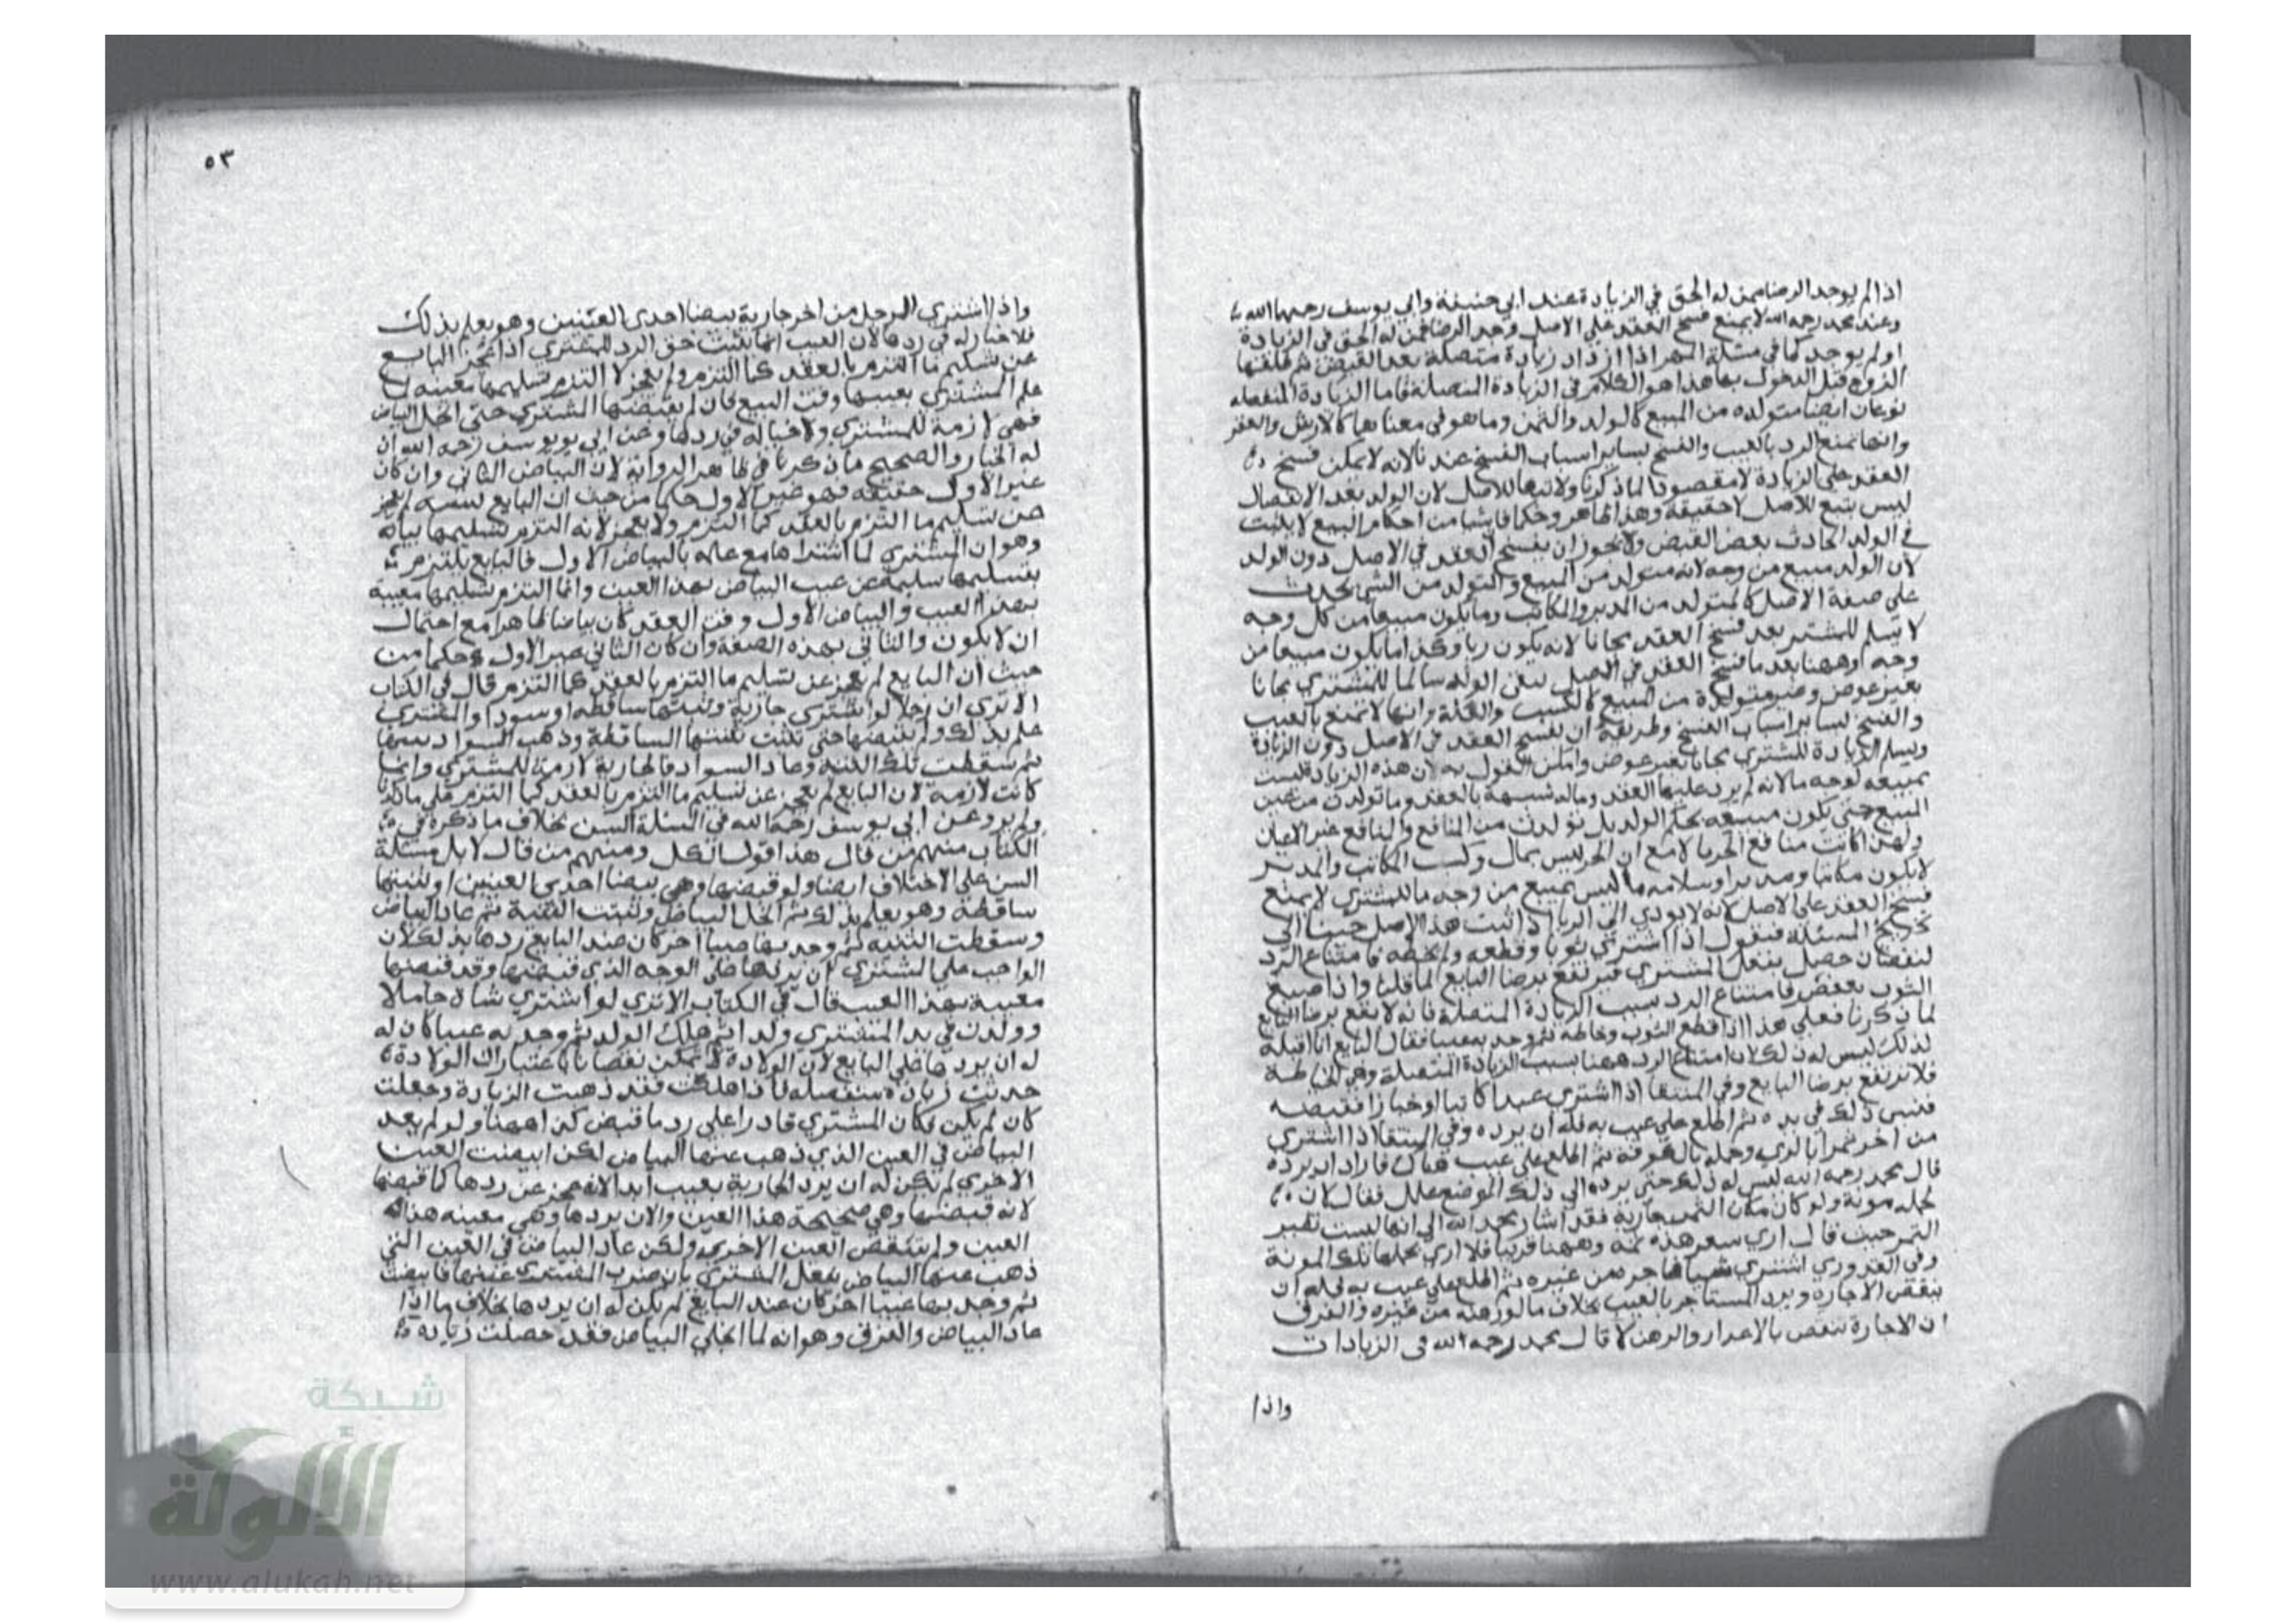 اذا لم يوجد الرضا ممن له الحق في الزيادة عند ابي حنيفة وابي يوسف رحمهما الله
وعند محمد رحمه الله لا يمنع فسخ العقد على الاصل وجد الرضا ممن له الحق في الزيادة
او لم يوجد كما في مسئلة المهر اذا ازداد زيادة متصلة بعد القبض ثم طلقها
الزوج قبل الدخول بها هذا هو الكلام في الزيادة المتصلة فاما الزيادة المنفصله
نوعان ايضا متولده من المبيع كالولد والثمر وما هو في معناهما كالارش والعقر
وانها تمنع الرد بالعيب والفسخ بساير اسباب الفسخ عندنا لانه لا يمكن فسخ
العقد على الزيادة لا مقصودا لما ذكرنا ولا تبعا للاصل لان الولد بعد الانفصال
ليس بتبع للاصل لا حقيقة وهذا ظاهر وحكما فايشا من احكام البيع لا يثبت
في الولد الحادث بعض القبض ولا يجوز ان يفسخ العقد في الاصل دون الولد
لان الولد مبيع من وجه لانه متولد من المبيع والمتولد من الشي يحدث
على صفة الاصل كالمتولد من المدبر والمكاتب وما يكون مبيعا من كل وجه
لا يسلم للمشتر بعد فسخ العقد مجانا لانه يكون ربا وكذا ما يكون مبيعا من
وجه اوههنا بعد ما فسخ العقد في الاصل يبقى الولد سالما للمشتري مجانا
بغير عوض وغير متولدة من المبيع كالكسب والغلة وانها لا تمنع بالعيب
والفسخ لساير اسباب الفسخ وطريقه ان يفسخ العقد في الاصل دون الزيادة
ويسلم الزيادة للمشتري مجانا بغير عوض وامكن القول به لان هذه الزيادة ليست
بمبيعه لوجه ما لانه لم يرد عليها العقد وماله شبهة بالعقد وما تولدت من عين
المبيع حتى يكون مبيعه بحكم الولد بل تولدت من المنافع والمنافع غير الاعيان
ولهذا كانت منافع الحر مالا مع ان الحر ليس بمال وكسب المكاتب والمدبر
لا يكون مكاتبا ومدبرا وسلامه ما ليس بمبيع من وجه ما للمشتري لا يمنع
فسخ العقد على الاصل لانه لا يودي الى الربا اذا ثبت هذا الاصل جينا الى
تخريج المسئلة فنقول اذا اشترى ثوبا وقطعه ولم يخطه فامتناع الرد
لنقصان حصل بفعل المشتري فيرتفع برضا البايع لما قلنا واذا صبغ
الثوب بعصفر فامتناع الرد بسبب الزيادة المتصلة فانه لا يرتفع برضا البايع
لما ذكرنا فعلى هذا اذا قطع الثوب وخاطه ثم وجد به عيبا فقال البايع انا اقبله
لذلك ليس له ذلك لان امتناع الرد ههنا بسبب الزيادة المتصلة وهي الخياطة
فلا ترتفع برضا البايع وفي المنتقا اذا اشترى عبدا كاتبا او خبازا فقبضه
فنسى ذلك في يده ثم اطلع على عيب به فله ان يرده وفي المنتقا اذا اشترى
من اخر تمرا بالري وحمله بالكوفة ثم اطلع على عيب هناك فاراد ان يرده
قال محمد رحمه الله ليس له ذلك حتى يرده الى ذلك الموضع علل فقال لان
لحمله مونة ولو كان مكان التمر جارية فقد اشار محمد الله الى انها ليست نظير
التمر حيث قال ارى سعر هذه ثمه وههنا قريبا فلا ارى لحملها تلك المونة
وفي القدوري اشترى شيا فاجره من غيره ثم اطلع على عيب به فله ان
ينقض الاجارة ويرد المستاجر بالعيب بخلاف ما لو رهنه من غيره والفرق
ان الاجارة تنقض بالاعذار والرهن لا قال محمد رحمه الله في الزيادات
واذا
٥٣
واذا اشترى الرجل من اخر جارية بيضا احدى العينين وهو يعلم بذلك
فلا خيار له في ردها لان العيب انما يثبت حق الرد للمشتري اذا عجز البايع
عن تسليم ما التزم بالعقد كما التزم ولم يعجز لا التزم تسليمها معيبه لما
علم المشتري بعيبها وقت البيع فان لم يقبضها المشتري حتى انجل البياض
فهي لازمة للمشتري ولا خيار له في ردها وعن ابي يوسف رحمه الله ان
له الخيار والصحيح ما ذكرنا في ظاهر الرواية لان البياض الثاني وان كان
غير الاول حقيقه فهو غير الاول حكما من حيث ان البايع لسببه لم يعجز
عن تسليم ما التزم بالعقد كما التزم ولا يعجز لانه التزم تسليمها بيانه
وهو ان المشتري لما اشتراها مع علمه بالبياض الاول فالبايع يلتزم
بتسليمها سليمة عن عيب البياض بهذا العين وانما التزم تسليمها معيبة
بهذا العيب والبياض الاول وقت العقد كان بياضا ظاهرا مع احتمال
ان لا يكون والثاني بهذه الصفة وان كان الثاني غير الاول حكما من
حيث ان البايع لم يعجز عن تسليم ما التزم بالعقد كما التزم قال في الكتاب
الا ترى ان رجلا لو اشترى جارية وثنيتها ساقطه او سودا والمشتري
علم بذلك ولم يقبضها حتى نبتت ثنيتها الساقطة وذهب السواد
ثم سقطت تلك الثنيه وعاد السواد فالجارية لازمة للمشتري وانما
كانت لازمة لان البايع لم يعجز عن تسليم ما التزم بالعقد كما التزم على ما ذكرنا
ولم يرو عن ابي يوسف رحمه الله في المسئلة السن بخلاف ما ذكره في
الكتاب منهم من قال هذا قول الكل ومنهم من قال لا بل مسئلة
السن على الاختلاف ايضا ولو قبضها وهي بيضا احدى العينين او ثنيتها
ساقطة وهو يعلم بذلك ثم انجلا البياض ونبتت الثنية ثم عاد البياض
وسقطت الثنيه ثم وجد بها عيبا اخر كان عند البايع ردها بذلك لان
الواجب على المشتري ان يردها على الوجه الذي قبضها وقد قبضها
معيبة بهذا العيب قال في الكتاب الا ترى لو اشترى شاة حاملا
وولدت في يد المشتري ولدا ثم هلك الولد ثم وجد به عيبا كان له
له ان يردها على البايع لان الولادة لا تمكن نقصانا باعتبار ان الولادة
حدثت زيادة منفصله فاذا هلكت فقد ذهبت الزيادة وجعلت
كان لم يكن فكان المشتري قادرا على رد ما قبض كذا ههنا ولو لم يعد
البياض في العين الذي ذهب عنها البياض لكن ابيضت العين
الاخرى لم يكن له ان يرد الجارية بعيب ابدا لانه عجز عن ردها كما قبضها
لانه قبضها وهي صحيحة هذا العين والان يردها وهي معيبه هذا
العين ولم تنقص العين الاخرى ولكن عاد البياض في العين التي
ذهب عنها البياض بفعل المشتري بان ضرب المشتري عينها فابيضت
ثم وجد بها عيبا اخر كان عند البايع لم يكن له ان يردها بخلاف ما اذا
عاد البياض والفرق وهو انه لما انجلى البياض فقد حصلت زياده
شبكة
الألوكة
www.alukah.net